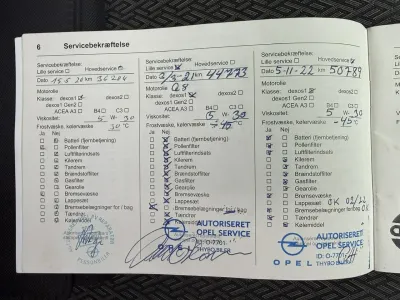 6 Servicebekræftelse
Servicebekræftelse:
Lille service Hovedservice
Dato km 36204
Motorolie
Klasse: dexos1 dexos2
dexos1 Gen2
ACEA A3 B4 C3
Viskositet: 5 W- 30
Frostvæske, kølervæske
30°C
Ja Nej
Batteri (fjernbetjening)
Pollenfilter
Luftfilterindsats
Kilerem
Tændrør
Brændstoffilter
Gasfilter
Gearolie
Bremsevæske
Lappesæt
Bremsebelægninger for / bag
Tændrør
Kølemiddel
Servicebekræftelse:
Lille service Hovedservice
Dato 3/3-21 km 44273
Motorolie
Klasse: dexos1 dexos2
dexos1 Gen2
ACEA A3 B4 C3
Viskositet: 5 W- 30
Frostvæske, kølervæske
Ja Nej
Batteri (fjernbetjening)
Pollenfilter
Luftfilterindsats
Kilerem
Tændrør
Brændstoffilter
Gasfilter
Gearolie
Bremsevæske
Lappesæt
Bremsebelægninger for / bag
Tændrør
AUTORISERET
OPEL SERVICE
ID: O-7701
THYBO BILER
OPEL
Servicebekræftelse:
Lille service Hovedservice
Dato 5-11-22 km 50789
Motorolie
Klasse: dexos1 dexos2
dexos1 Gen2
ACEA A3 B4 C3
Viskositet: 5 W- 30
Frostvæske, kølervæske
Ja Nej
Batteri (fjernbetjening)
Pollenfilter
Luftfilterindsats
Kilerem
Tændrør
Brændstoffilter
Gasfilter
Gearolie
Bremsevæske
Lappesæt OK
Bremsebelægninger for OK
Tændrør
Kølemiddel
AUTORISERET
OPEL SERVICE
ID: O-7701
THYBO BILER
OPEL